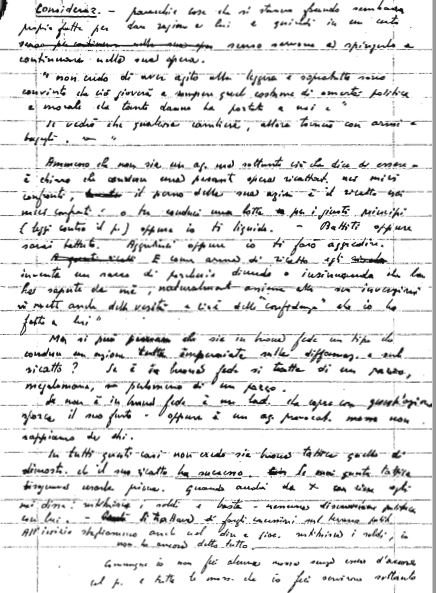 Consideraz. - parecchie cose che si stanno facendo sembrano
proprio fatte per dare ragione a lui e quindi in un certo
senso servono a spingerlo a
continuare nella sua opera.
" non credo di aver agito alla leggera e sopratutto sono
convinto che ciò gioverà a rompere quel costume di omertà politica
e morale che tanto danno ha portato a noi e "
Se vedrò che qualcosa cambierà, allora tornerò con armi e
bagagli. "
Ammesso che non sia un ag. ma soltanto ciò che dice di essere -
è chiaro che conduce una pesante opera ricattat. nei miei
confronti, il perno della sua azione è il ricatto nei
miei confronti: o tu conduci una lotta per i giusti principi
( leggi contro il p.) oppure io ti liquido. - Battiti oppure
sarai battuto. Aggredisci oppure io ti farò aggredire.
E come arma di ricatto egli
inventa un sacco di porcherie dicendo o insinuando che le
ha sapute da me, naturalmente assieme alle sue invenzioni
ci mette anche delle verità e cioè delle "confidenze" che io ho
fatto a lui "
Ma si può che sia in buona fede un tipo che
conduce un'azione tutta imperniata sulla diffamaz. e sul
ricatto? Se è in buona fede si tratta di un pazzo,
megalomane, ma pur sempre di un pazzo.
Se non è in buona fede è un lad. che copre con
il suo furto - oppure è un ag. provocat. ma non
sappiamo di chi.
In tutti questi casi non credo sia buona tattica quella di
dimostr. che il suo ricatto ha successo, la mia
bisognava usarla prima. Quando andai da X con egli
mi disse: restituisca i soldi e basta - nessuna discussione politica
con lui. - Si trattava di fargli concessioni sul terreno polit.
All'inizio
non ha ancora detto tutto.
Comunque io non feci alcuna mossa senza essere d'accordo
col p. e tutte le mosse che io feci servirono soltanto